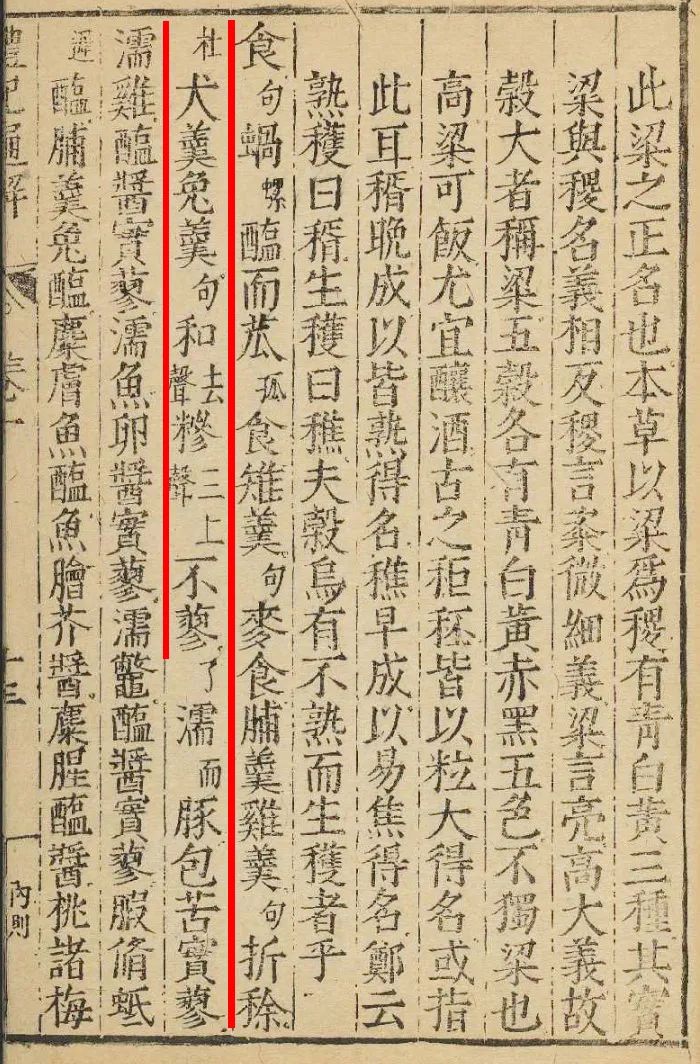 此梁之正名也本草以梁爲稷有青白黃三種其實
梁與稷名義相反稷言粢微細義梁言亮高大義故
穀大者稱梁五穀各有青白黃赤黑五色不獨梁也
高梁可飯尤宜釀酒古之秬秠皆以粒大得名或指
此耳稰晚成以皆熟得名穛早成以易焦得名鄭云
熟穫曰稰生穫曰穛夫穀烏有不熟而生穫者乎
食句蝸螺醢而苽孤食雉羹句麥食脯羹雞羹句折稌
杜犬羹兔羹句和去聲糝三上聲不蓼了濡而豚包苦實蓼
濡雞醢醬實蓼濡魚卵醬實蓼濡鼈醢醬實蓼腶脩蚳
遲醢脯羹兔醢麋膚魚醢魚膾芥醬麋腥醢醬桃諸梅
禮記通解
內則